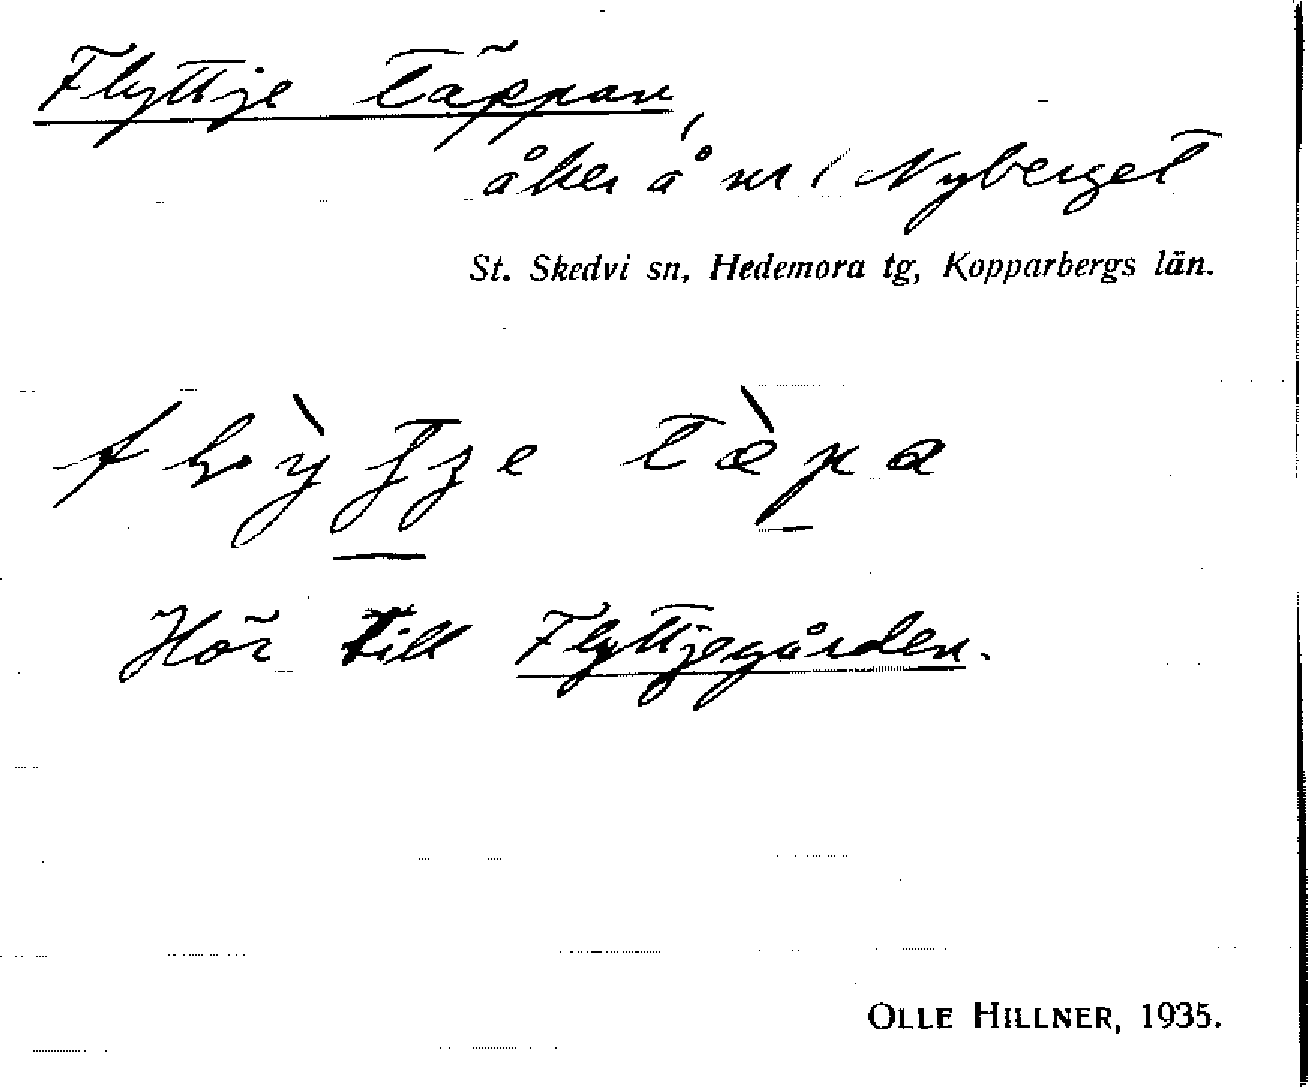 Flyttje Täppan,
åker å nr 1 Nyberget
St. Skedvi sn, Hedemora tg, Kopparbergs län.
tæ̀pa
Hör till Flyttjegården.
OLLE HILLNER, 1935.